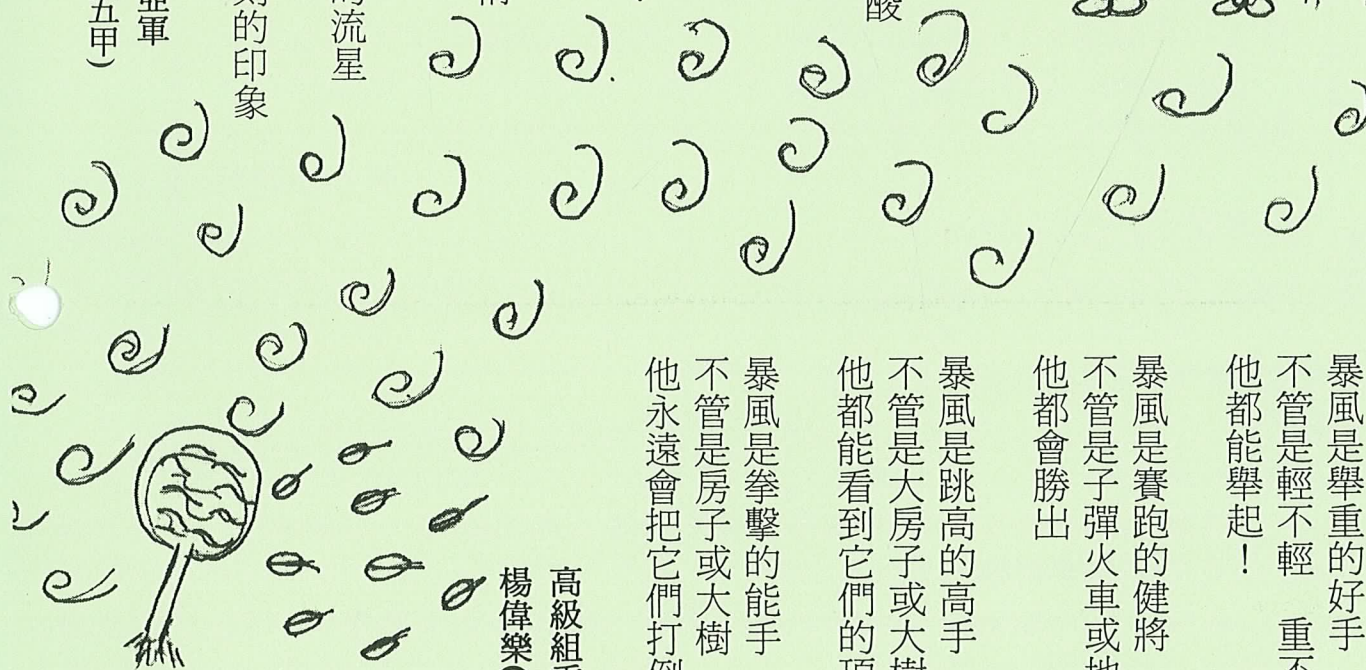 酸
流星
的印象
亞軍
五甲）
暴風是舉重的好手
不管是輕不輕　重不
他都能舉起！
暴風是賽跑的健將
不管是子彈火車或地
他都會勝出
暴風是跳高的高手
不管是大房子或大樹
他都能看到它們的頂
暴風是拳擊的能手
不管是房子或大樹
他永遠會把它們打倒
高級組
楊偉樂